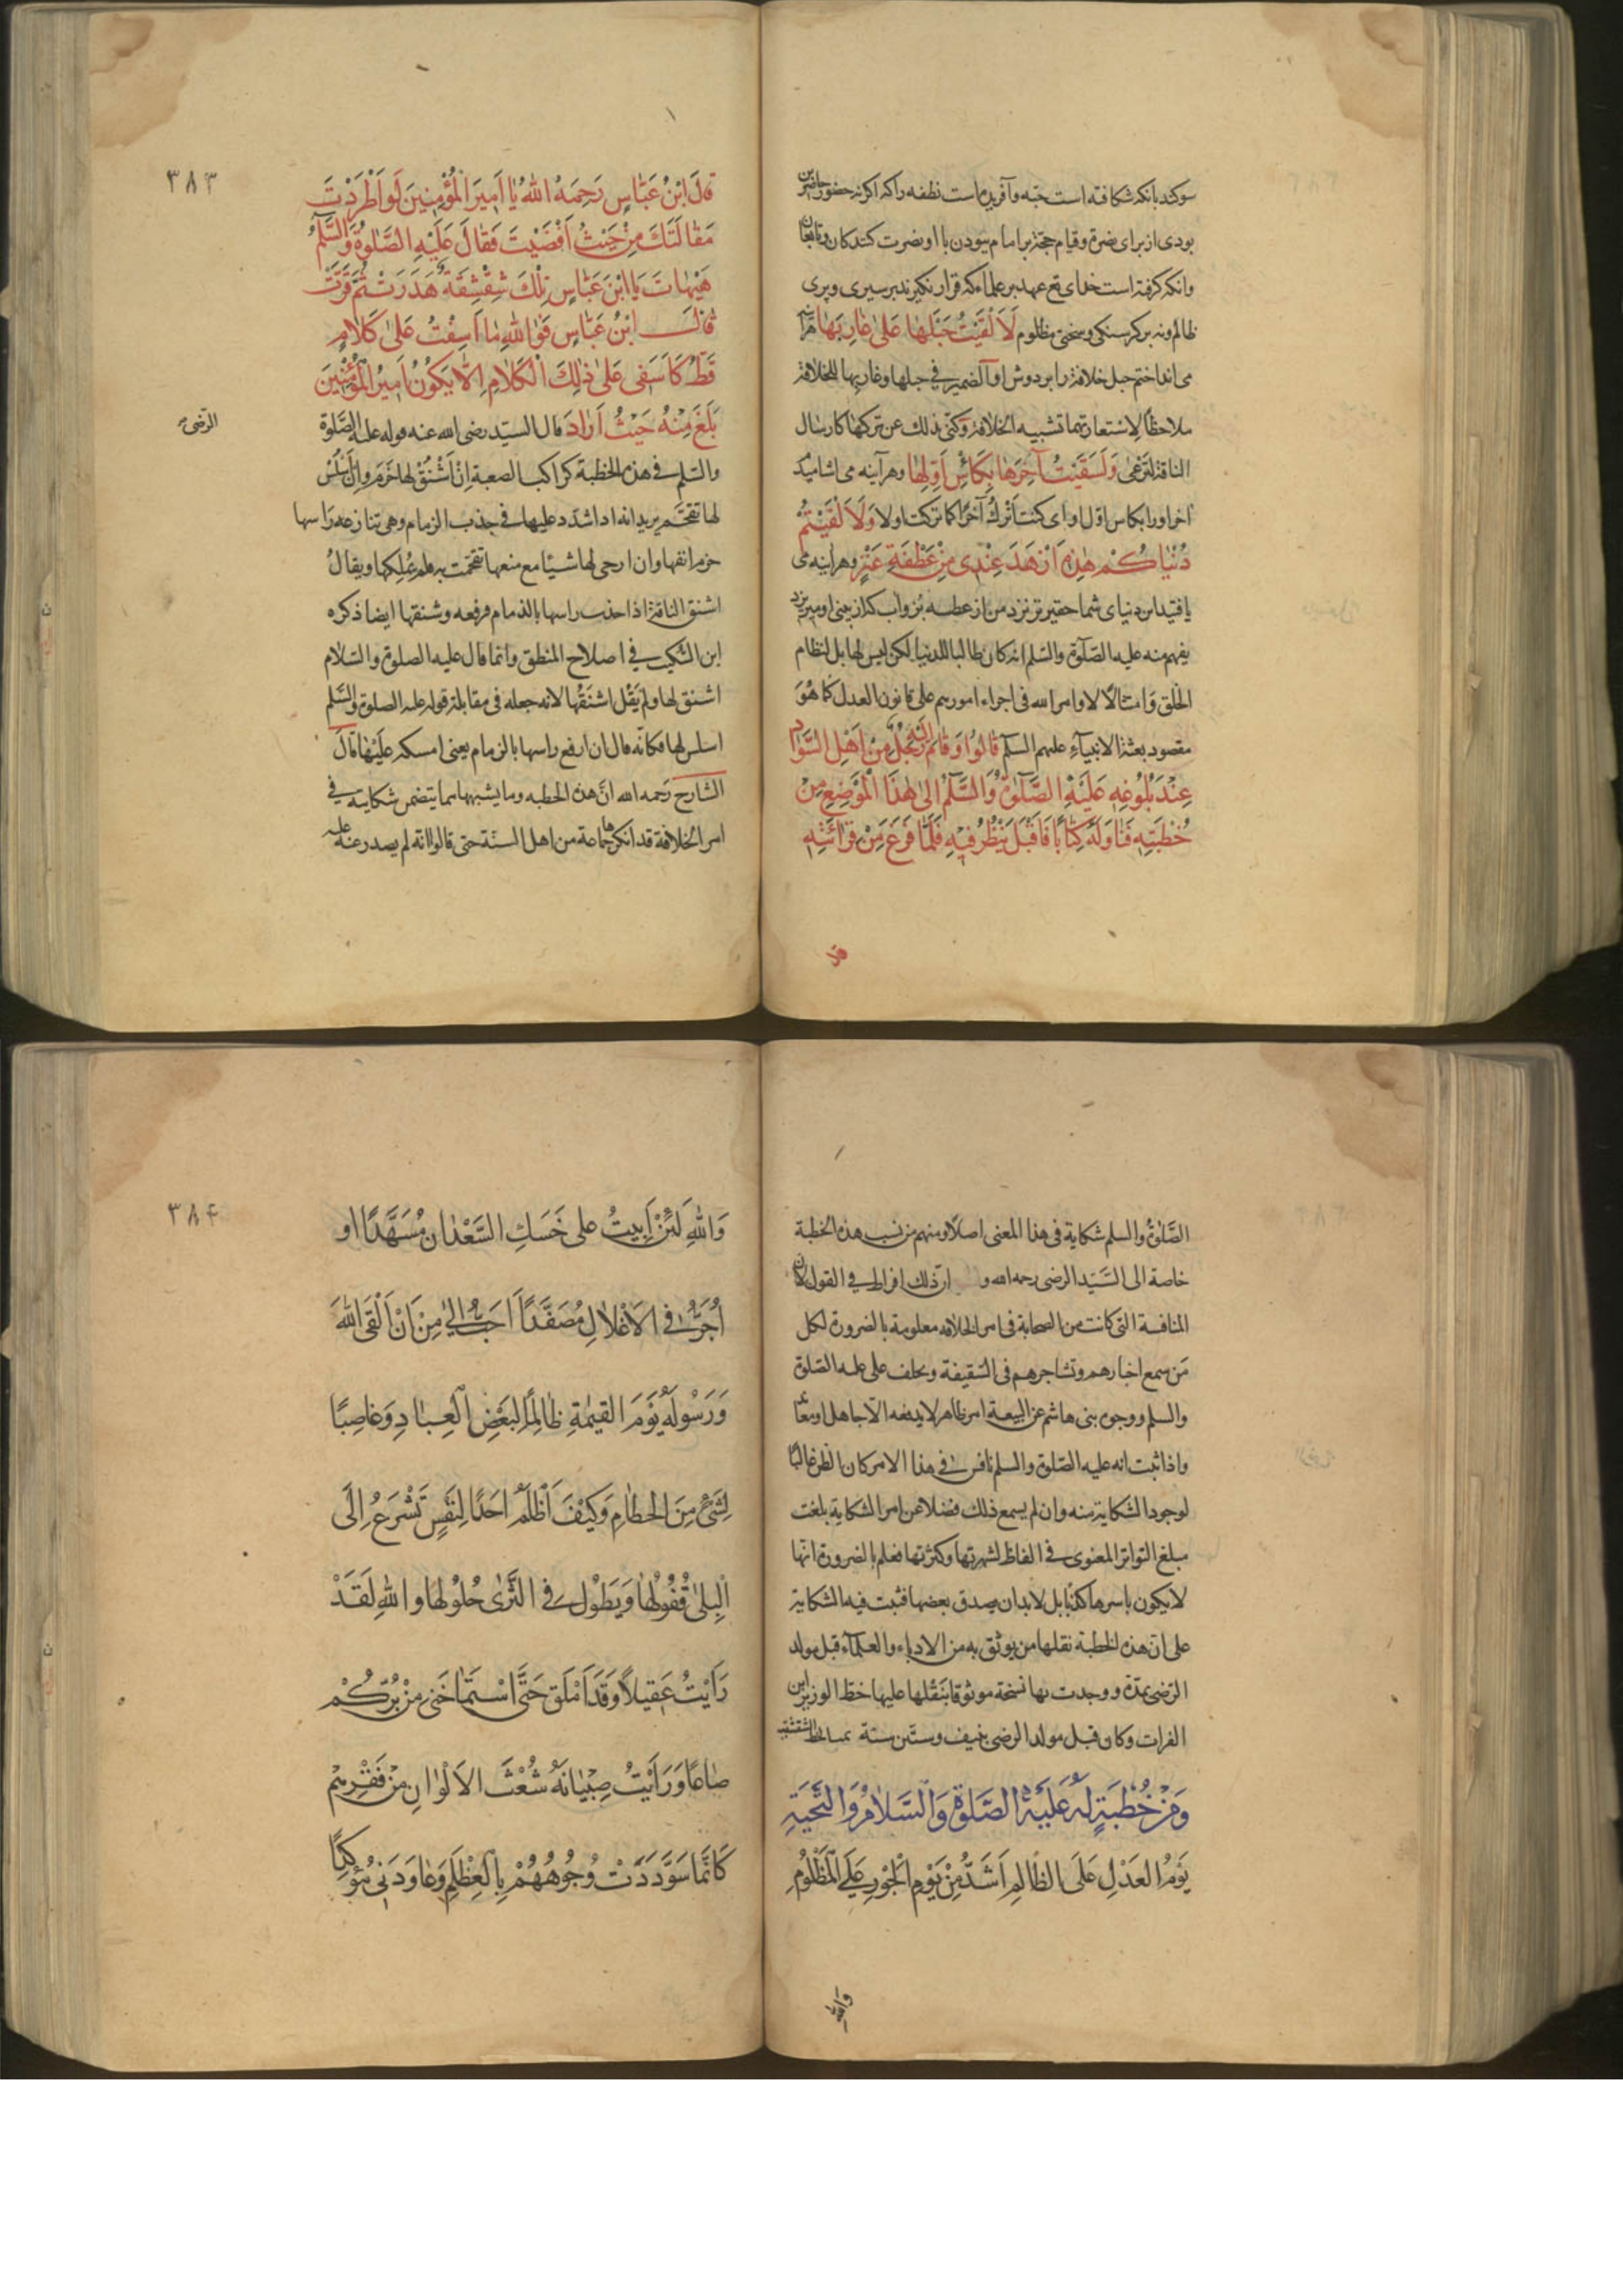 سوکند بانکه شکافته است حبّه و آفریده است نطفه را که اکر نه حضور حاضرین
بودی از برای نصرة و قیام حجّة بر امام بودن با او نصرت کنندکان و تابعان
و آنکه کرفته است خدای تع عهد بر علماء که قرار نکیرند بر سیری و پری
ظالم و نه بر کرسنکی و سختی مظلوم لَاَلْقَیْتُ حَبْلَهَا عَلیٰ غَارِبِهَا هر آینه
می انداختم حبل خلافة را بر دوش او و الضمیر فی حبلها و غاربها للخلافة
ملاحظاً لاستعارتهما تشبیه الخلافة وکنّی بذلک عن ترکها کارسال
الناقة لترعی وَلَسَقَیْتُ آخِرَهَا بِکَاْسِ اَوَّلِهَا و هر آینه می اشامیدم
آخر او را بکاس اوّل او ای کنت اَتْرُکُ آخراً کما ترکت اولا وَلَاَلْفَیْتُمْ
دُنْیَاکُمْ هٰذِهِ اَزْهَدَ عِنْدِی مِنْ عَطْفَةِ عَنْزٍ و هر اینه می
یافتید این دنیای شما حقیرتر نزد من از عطسه بز و آب که از بینی او میریزد
یفهم منه علیه الصّلوة والسّلم انه کان طالبا للدنیا لکن لیس لها بل لنظام
الخلق وامتثالاً لاوامر الله فی اجراء امورهم علی قانون العدل کما هُوَ
مقصود بعثة الانبیآء علیهم السّلم قَالُوا وَقَامَ اِلَیْهِ رَجُلٌ مِنْ اَهْلِ السَّوَادِ
عِنْدَ بُلُوغِهِ عَلَیْهِ الصَّلٰوةُ وَالسَّلٰمُ اِلیٰ هٰذَا الْمَوْضِعِ مِنْ
خُطْبَتِهِ فَنَاوَلَهُ کِتَابًا فَاَقْبَلَ یَنْظُرُ فِیْهِ فَلَمَّا فَرَغَ مِنْ قَرَائَتِهِ
قال
۳۸۳
قَالَ ابْنُ عَبَّاسٍ رَحِمَهُ اللهُ یَا اَمِیرَ الْمُؤْمِنِینَ لَوِ اَطْرَدْتَ
مَقَالَتَکَ مِنْ حَیْثُ اَفْضَیْتَ فَقَالَ عَلَیْهِ الصَّلٰوةُ وَالسَّلٰمُ
هَیْهَاتَ یَا ابْنَ عَبَّاسٍ تِلْکَ شِقْشِقَةٌ هَدَرَتْ ثُمَّ قَرَّتْ
قَالَ ابْنُ عَبَّاسٍ فَوَاللهِ مَا اَسِفْتُ عَلیٰ کَلَامٍ
قَطُّ کَاَسَفِی عَلیٰ ذٰلِکَ الْکَلَامِ اِلَّا یَکُونُ اَمِیرُ الْمُؤْمِنِینَ
بَلَغَ مِنْهُ حَیْثُ اَرَادَ قال السیّد رضی الله عنه قوله علیه الصّلوة
الرّضی
والسّلم فی هذه الخطبة کراکب الصعبة اِنْ اَشْنَقَ لها خَرَمَ وان اَسْلَسَ
لها تقحّم یرید انه اذا شدّد علیها فی جذب الزمام وهی تنازعه رَاسها
خرم انفها وان ارخی لها شیئًا مع صعبها تقحمت به فلم یملکها ویقالُ
اشنق الناقة اذا جذب راسها بالزمام فرفعه وشنقها ایضا ذکره
ابن السّکیت فی اصلاح المنطق وانما قال علیه الصلوة والسّلام
اشنق لها ولم یَقُلْ اشنَقَها لانه جعله فی مقابلة قوله علیه الصلوة والسّلم
اسلس لها فکانّه قال ان ارفع راسها بالزمام یعنی امسکه عَلَیْهَا قَالَ
الشارح رَحمه الله انّ هذه الخطبه وما یشبهها مما یتضمن شکایته فی
امر الخلافة قد انکرها جماعة من اهل السنّة حتی قالوا انه لم یصدر عنه علیه
الصَّلوةُ والسلم شکایة فی هذا المعنی اصلاً ومنهم من نسب هذه الخطبة
خاصة الی السَّیّد الرضی رحمه الله و انّ ذلک افراط فی القول لان
المنافسة التی کانت من الصحابة فی امر الخلافه معلومة بالضرورة لکل
مَن سمع اخبارهم وتشاجرهم فی السّقیفة وتخلف علی علیه الصّلوة
والسلم ووجوه بنی هاشم عن البیعة امر ظاهر لا یدفعه الّا جاهل او معاند
واذا ثبت انه علیه الصّلوة والسلم نافس فی هذا الامر کان الظن غالبًا
لوجود الشکایة منه وان لم یسمع ذلک فضلا عن امر الشکایة بلغت
مبلغ التواتر المعنوی فی الفاظ لشهرتها وکثرتها فعلم بالضرورة انّها
لا یکون باسرها کذبًا بل لا بد ان یصدق بعضها فثبت فیه الشکایة
علی انّ هذه الخطبة نقلها من یوثق به من الادباء والعلمآء قبل مولد
الرّضی بمدّة ووجدت بها نسخة موثوقا بنَقْلها علیها خطّ الوزیر ابن
الفرات وکان قبل مولد الرضی بنیف وستّین سنة
وَمِنْ خُطْبَةٍ لَهُ عَلَیْهِ الصَّلٰوةُ وَالسَّلَامُ وَالتَّحِیَّةِ
یَوْمُ الْعَدْلِ عَلَی الظَّالِمِ اَشَدُّ مِنْ یَوْمِ الْجَوْرِ عَلَی الْمَظْلُومِ
والله
۳۸۴
وَاللهِ لَئِنْ اَبِیتُ علی حَسَکِ السَّعْدَانِ مُسَهَّدًا او
اُجَرُّ فی الاَغْلَالِ مُصَفَّدًا اَحَبُّ اِلَیَّ مِنْ اَنْ اَلْقَی اللهَ
وَرَسُولَهُ یَوْمَ القیٰمَةِ ظَالِمًا لِبَعْضِ الْعِبَادِ وَغَاصِبًا
لِشَیْءٍ مِنَ الحُطَامِ وَکَیْفَ اَظْلِمُ اَحَدًا لِنَفْسٍ تَسْرَعُ اِلَی
الْبِلیٰ قُفُولُهَا وَیَطُوْلُ فی الثَّرٰی حُلُولُهَا وَاللهِ لَقَدْ
رَاَیْتُ عَقِیلًا وَقَدْ اَمْلَقَ حَتَّی اسْتَمَاحَنِی مِنْ بُرِّکُمْ
صَاعًا وَرَاَیْتُ صِبْیَانَهُ شُعْثَ الاَلْوَانِ مِنْ فَقْرِهِمْ
کَاَنَّمَا سَوَّدَتْ وُجُوهُهُمْ بِالْعِظْلِمِ وَعَاوَدَنِی مُؤَکِّدًا